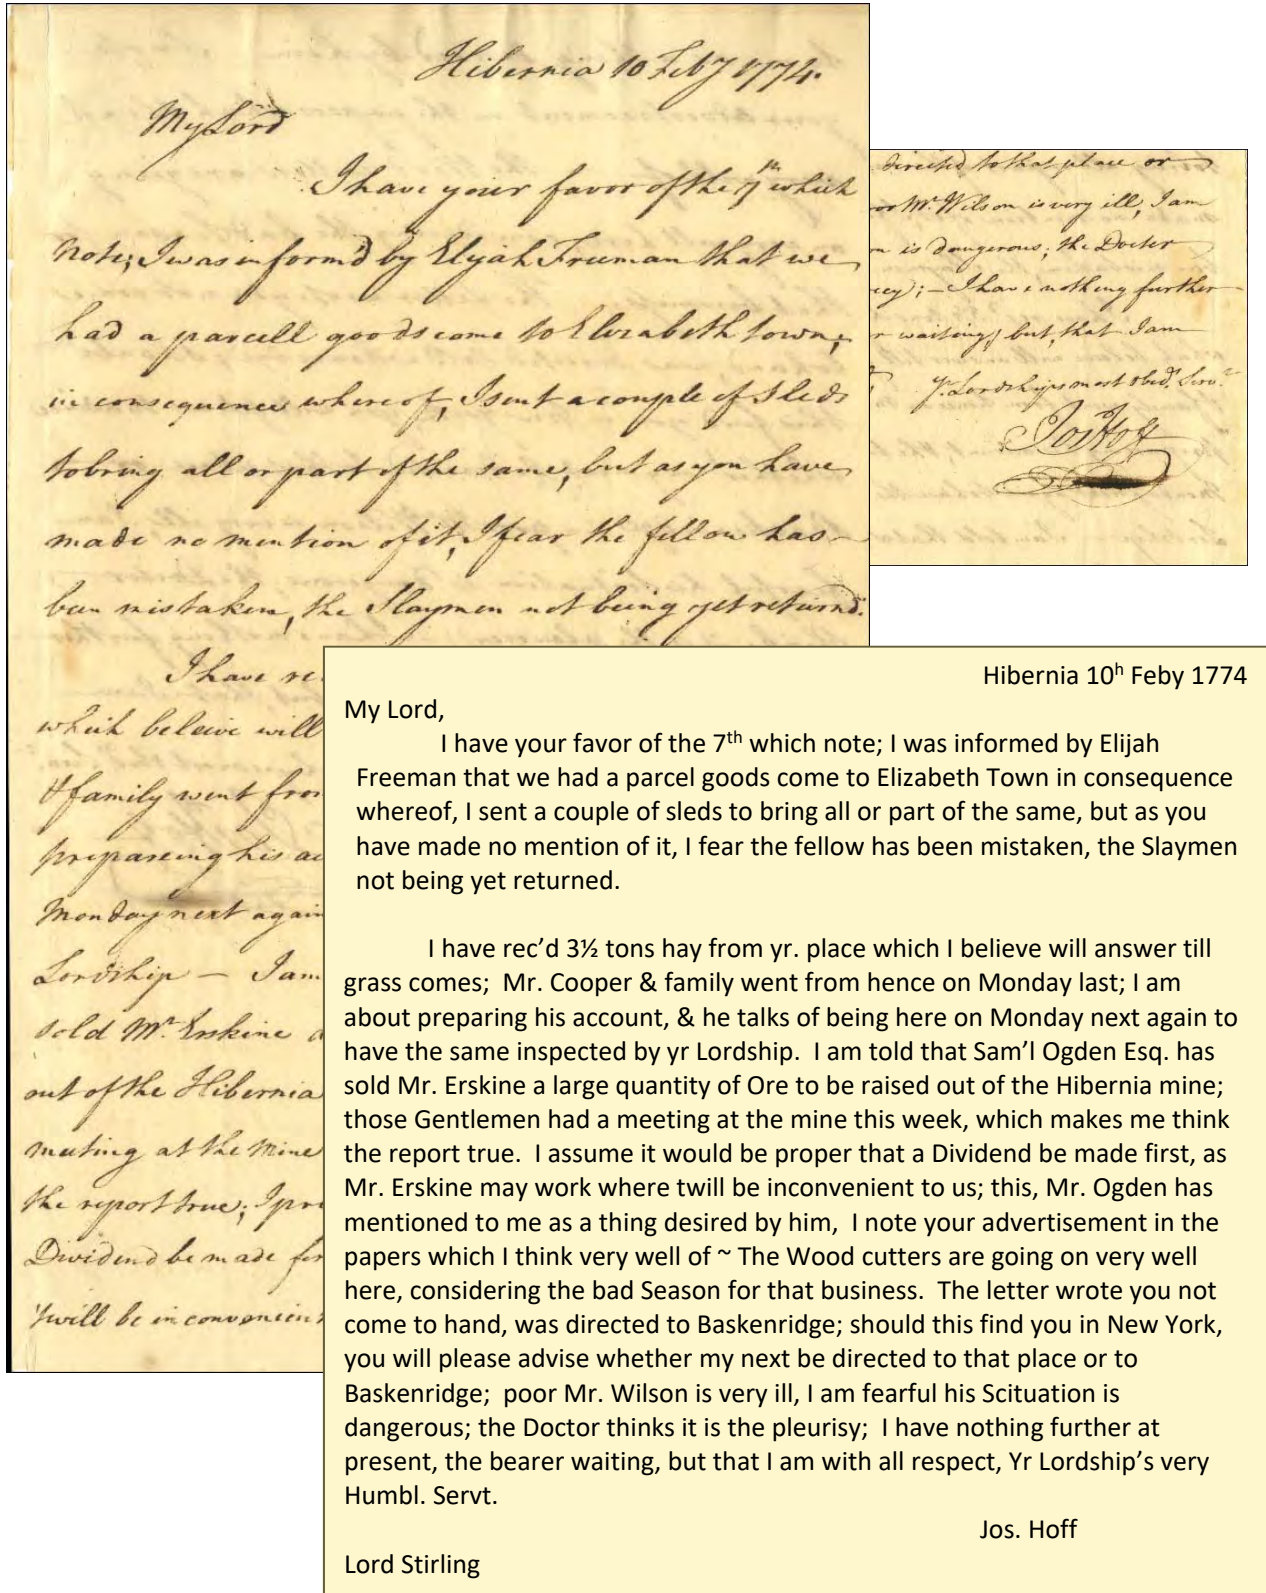 Hibernia 10 Feby 1774.
My Lord
I have your favor of the 7th which
note; I was inform'd by Elijah Freeman that we
had a parcell goods come to Elizabeth town;
in consequence whereof, I sent a couple of Sleds
to bring all or part of the same, but as you have
made no mention of it, I fear the fellow has
been mistaken, the Slaymen not being yet return'd.
I have re
which beleive will
& family went from
prepareing his ac
Monday next again
Lordship — I am
sold Mr. Erskine a
out of the Hibernia
meeting at the Mine
the report true; I pre
Dividend be made fir
twill be inconvenient
directed to that place or
oor Mr. Wilson is very ill, I am
n is dangerous; the Docter
; — I have nothing further
r waiting; but, that I am
Yr. Lordships most Obedt. Servt.
Jos Hoff
Hibernia 10h Feby 1774
My Lord,
I have your favor of the 7th which note; I was informed by Elijah
Freeman that we had a parcel goods come to Elizabeth Town in consequence
whereof, I sent a couple of sleds to bring all or part of the same, but as you
have made no mention of it, I fear the fellow has been mistaken, the Slaymen
not being yet returned.
I have rec'd 3½ tons hay from yr. place which I believe will answer till
grass comes; Mr. Cooper & family went from hence on Monday last; I am
about preparing his account, & he talks of being here on Monday next again to
have the same inspected by yr Lordship. I am told that Sam'l Ogden Esq. has
sold Mr. Erskine a large quantity of Ore to be raised out of the Hibernia mine;
those Gentlemen had a meeting at the mine this week, which makes me think
the report true. I assume it would be proper that a Dividend be made first, as
Mr. Erskine may work where twill be inconvenient to us; this, Mr. Ogden has
mentioned to me as a thing desired by him, I note your advertisement in the
papers which I think very well of ~ The Wood cutters are going on very well
here, considering the bad Season for that business. The letter wrote you not
come to hand, was directed to Baskenridge; should this find you in New York,
you will please advise whether my next be directed to that place or to
Baskenridge; poor Mr. Wilson is very ill, I am fearful his Scituation is
dangerous; the Doctor thinks it is the pleurisy; I have nothing further at
present, the bearer waiting, but that I am with all respect, Yr Lordship's very
Humbl. Servt.
Jos. Hoff
Lord Stirling